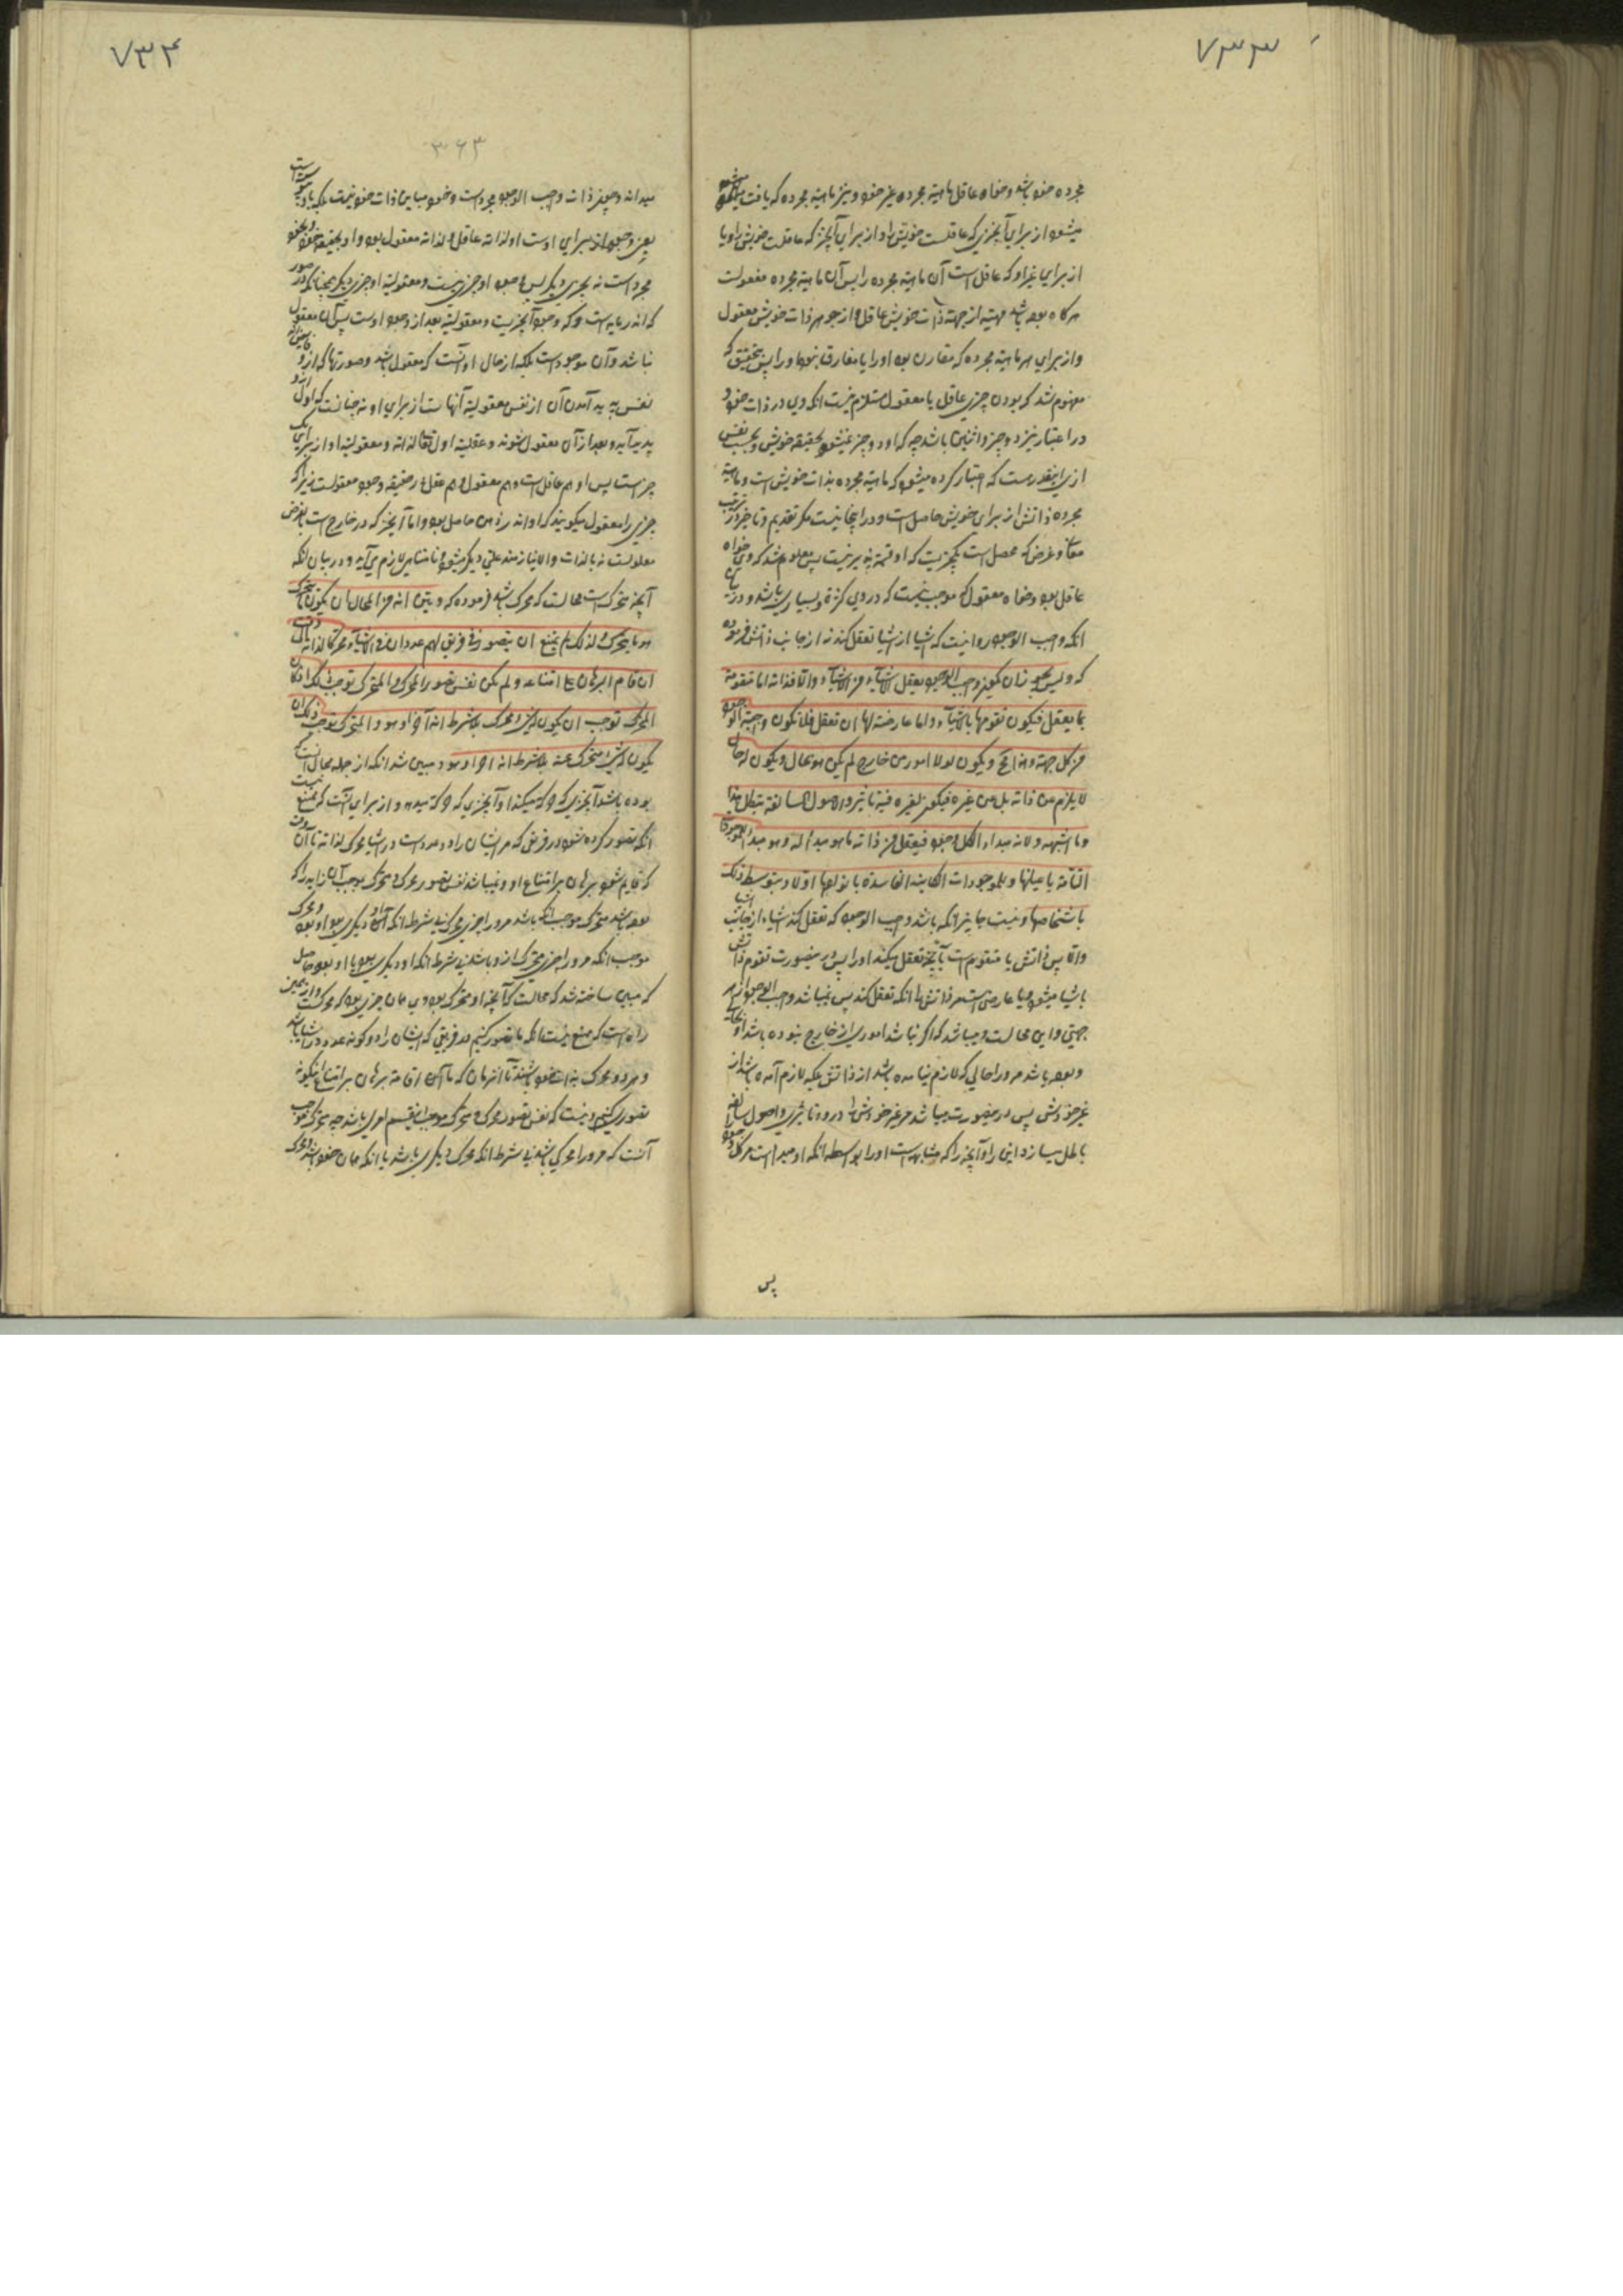 ٧٣٣
مجرده خود باشد و خواه عاقل ماهیة مجرده غیر خود و نیز ماهیة مجرده که یافت میشود
میشود از برای آنچیزی که عاقلست خویش را و از برای آنچیز که عاقلست خویش را و یا
از برای غیر او که عاقل است آن ماهیة مجرده را پس آن ماهیة مجرده معقولست
هرگاه بوده باشد مهیته از جهة ذات خویش عاقل و از جوهر ذات خویش معقول
و از برای هر ماهیة مجرده که مقارن بود او را یا مفارق نبود او را پس بتحقیق که
مفهوم شد که بودن چیزی عاقل یا معقول مستلزم نیست انکه وی در ذات خود و
در اعتبار نیز دو چیز و اثنین باشد چه که او دو چیز نمیشود بحقیقة خویش و بحسب نفس
ازیرا اینقدر هست که اعتبار کرده میشود که ماهیة مجرده بذات خویش است و ماهیة
مجرده ذاتش از برای خویش حاصل است و در اینجا نیست مگر تقدیم و تاخیر در ترتیب
معانی و غرض که محصل است یکچیز است که او قسمة پذیر نیست پس معلوم شد که وی خواه
عاقل بود و خواه معقول که موجب نیست که در وی کثرة و بسیاری باشد و در بیان
انکه واجب الوجود روا نیست که اشیا از اشیا تعقل کند نه از جانب ذاتش فرموده
که و لیس یجوز ان یکون واجب الوجود یعقل الاشیآء من الاشیآء و الا فذاته اما متقومة
بما یعقل فیکون تقومها بالاشیآء و اما عارضة لها ان تعقل فلا تکون واجبة الوجود
من کل جهة و هذا مح و یکون لولا امور من خارج لم یکن هو بحال و یکون له حال
لا یلزم من ذاته بل من غیره فیکون لغیره فیه تاثیر و الاصول السالفة تبطل هذا
و ما اشبهه و لانه مبداء الکل وجود فیعقل من ذاته ما هو مبدأ له و هو مبدأ الموجودات
التامة باعیانها و للموجودات الکاینة الفاسدة بانواعها اولا و بتوسط ذلک
باشخاصها و نیست جایز انکه باشد واجب الوجود که تعقل کند اشیاء از جانب اشیا
و الا پس ذاتش یا متقوم است بآنچه تعقل میکند او را پس در ینصورت تقوم ذاتش
باشیا میشود و یا عارضی است مر ذاتش را انکه تعقل کند پس نمیباشد واجب الوجود از هر
جهتی و این محالست و میباشد که اگر نباشد اموری از خارج نبوده باشد او بحاله
و بوده باشد مر ورا حالی که لازم نیامده باشد از ذاتش بلکه لازم آمده باشد از
غیر خودش پس در ینصورت میباشد مر غیر خودش را در وی تاثیری و اصول سالفه
باطل میسازد این را و آنچه را که مشابه است او را بواسطه انکه او مبداست مر کل وجود را
پس
٧٣۴
٣۶٣
میداند و چون ذات واجب الوجود مجرد است و خود مباین ذات خود نیست بلکه با وجود است
یعنی وجود او از برای اوست او لذاته عاقل و لذاته معقول بود و او بحقیقة خود
مجرد است نه بچیزی دیگر پس وجود او چیزی نیست و معقولیة او چیزی دیگر همچنانکه در صور
که وجود آنچیزیست و معقولیة بعد از وجود اوست پس آن معقول
نباشد و آن موجود است بلکه از حال او آنست که معقول باشد و صورتها که از و
نفس پدید آمدن آن از نفس معقولیة آنهاست از برای او نه چنانست که اول
پدید آید و بعد از آن معقول شوند و عقلیة اول تعالی لذاته و معقولیة او از برای یک
چیز است پس او هم عاقل است و هم معقول و هم عقل در حقیقه وجود معقولست زیرا که
چیزی را معقول میگویند که او در ذهن حاصل بود و اما آنچیز که در خارج است بالعرض
معلولست نه بالذات و الا نیازمند علمی دیگر میشود و نامتناهی لازم می آید و در بیان انکه
آنچه متحرک است محالست که محرک باشد فرموده که و بین انه من المحال ان یکون ما یتحرک
هو ما یحرک و لذلک لم یمتنع ان یتصور فریق لهم عدد ان فی الاشیآء محرکا لذاته الی وقت
ان قام البرهان علی امتناعه و لم یکن نفس تصور المحرک و المتحرک توجب ذلک اذ کان
المتحرک توجب ان یکون له شیء محرک بلا شرط انه آخر او هو و المحرک یوجب ان
یکون له شیء متحرک عنه بلا شرط انه آخر او هو و مبین شد انکه از جمله محال است
بوده باشد آنچیزی که حرکة میکند او آنچیزی که حرکة میدهد و از برای آنست که ممتنع نیست
انکه تصور کرده شود در فریقی که مر ایشان را عدد است در اشیا محرکی لذاته تا آن وقت
که قایم شود برهان بر امتناع او و نمیباشد نفس تصور محرک و متحرک موجب آن زیرا که
بوده باشد متحرک موجب آنکه باشد مر ورا چیزی محرک بی شرط انکه آن دیگری بود یا او بود و محرک
موجب انکه مر ورا چیزی متحرک از و باشد بی شرط انکه او دیگری بود یا او بود حاصل
که مبین ساخته شد که محالست که آنچه او متحرک بود وی همان چیزی بود که محرکست و از همین
راه است که ممتنع نیست انکه ما تصور کنیم فریقی که ایشان را عدد در اشیا باشد
و هر دو محرک بذات خود باشند تا آنزمان که ما آن اقامة برهان بر امتناع اینگونه
تصوری کنیم و نیست که نفس تصور محرک و متحرک موجب اینقسم امری باشد چه متحرک موجب
آنست که مر ورا محرکی باشد بی شرط انکه محرک دیگری باشد یا انکه همان خود باشد و محرک